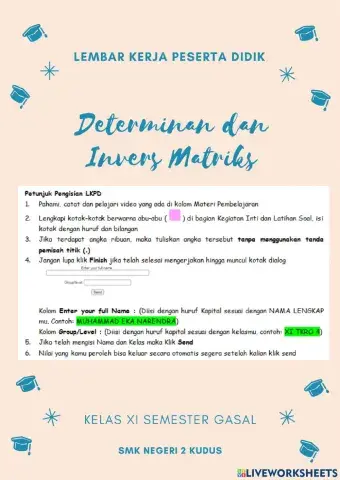 LEMBAR KERJA PESERTA DIDIK
Determinan dan
Invers Matriks
Petunjuk Pengisian LKPD
1. Pahami, catat dan pelajari video yang ada di kolom Materi Pembelajaran
2. Lengkapi kotak-kotak berwarna abu-abu ( ) di bagian Kegiatan Inti dan Latihan Soal, isi
kotak dengan huruf dan bilangan
3. Jika terdapat angka ribuan, maka tuliskan angka tersebut tanpa menggunakan tanda
pemisah titik (.)
4. Jangan lupa klik Finish jika telah selesai mengerjakan hingga muncul kotak dialog
Enter your full name
Group/level
Send
Kolom Enter your full Name : (Diisi dengan huruf Kapital sesuai dengan NAMA LENGKAP
mu, Contoh: MUHAMMAD EKA NARENDRA)
Kolom Group/Level : (Diisi dengan huruf kapital sesuai dengan kelasmu, contoh: XI TKRO 4)
5. Jika telah mengisi Nama dan Kelas maka Klik Send
6. Nilai yang kamu peroleh bisa keluar secara otomatis segera setelah kalian klik send
KELAS XI SEMESTER GASAL
SMK NEGERI 2 KUDUS
LIVEWORKSHEETS